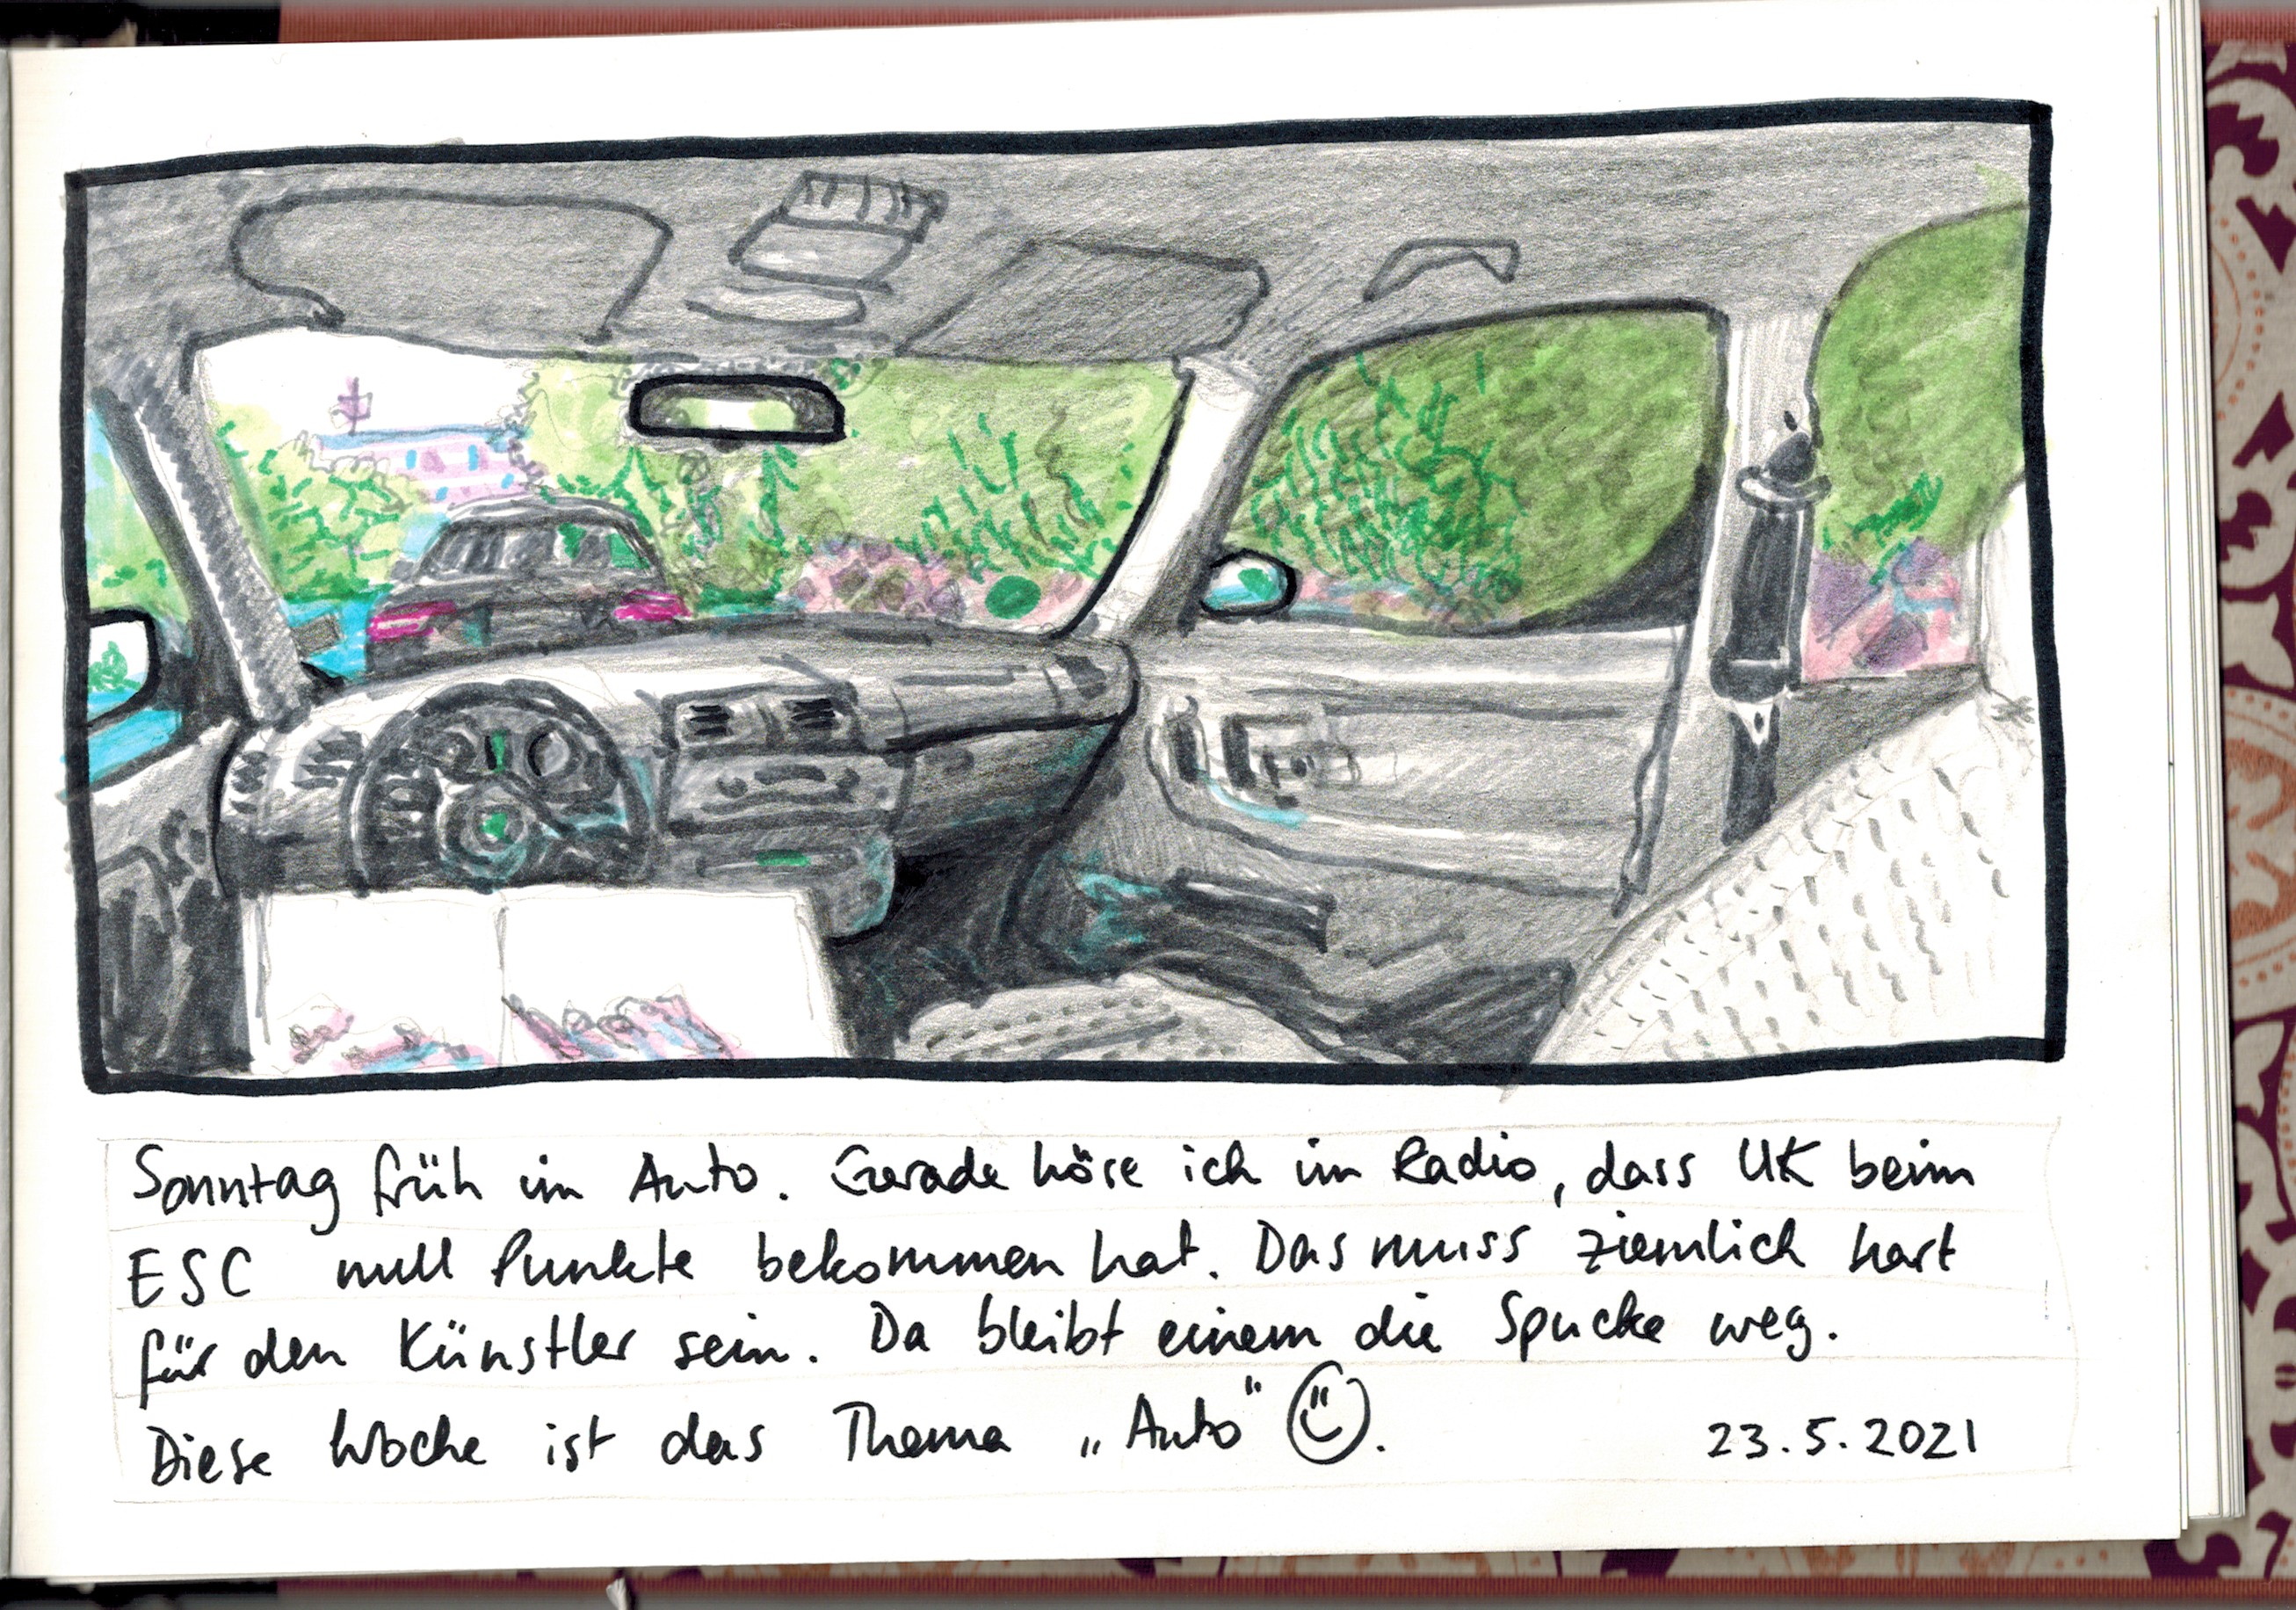 Sonntag früh im Auto. Gerade höre ich im Radio, dass UK beim
ESC null Punkte bekommen hat. Das muss ziemlich hart
für den Künstler sein. Da bleibt einem die Spucke weg.
Diese Woche ist das Thema „Auto“ .
23.5.2021